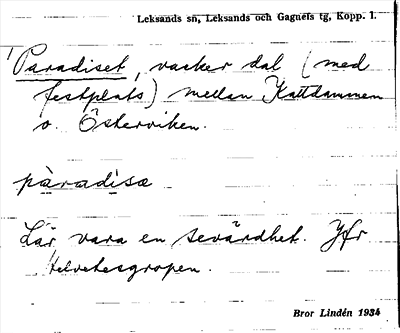 Leksands sn, Leksands och Gagnefs tg, Kopp. l.
Paradiset, vacker dal (med
festplats) mellan Kattdammen
o. Österviken.
pàradisα
Lär vara en sevärdhet. Jfr
Helvetesgropen.
Bror Lindén 1934